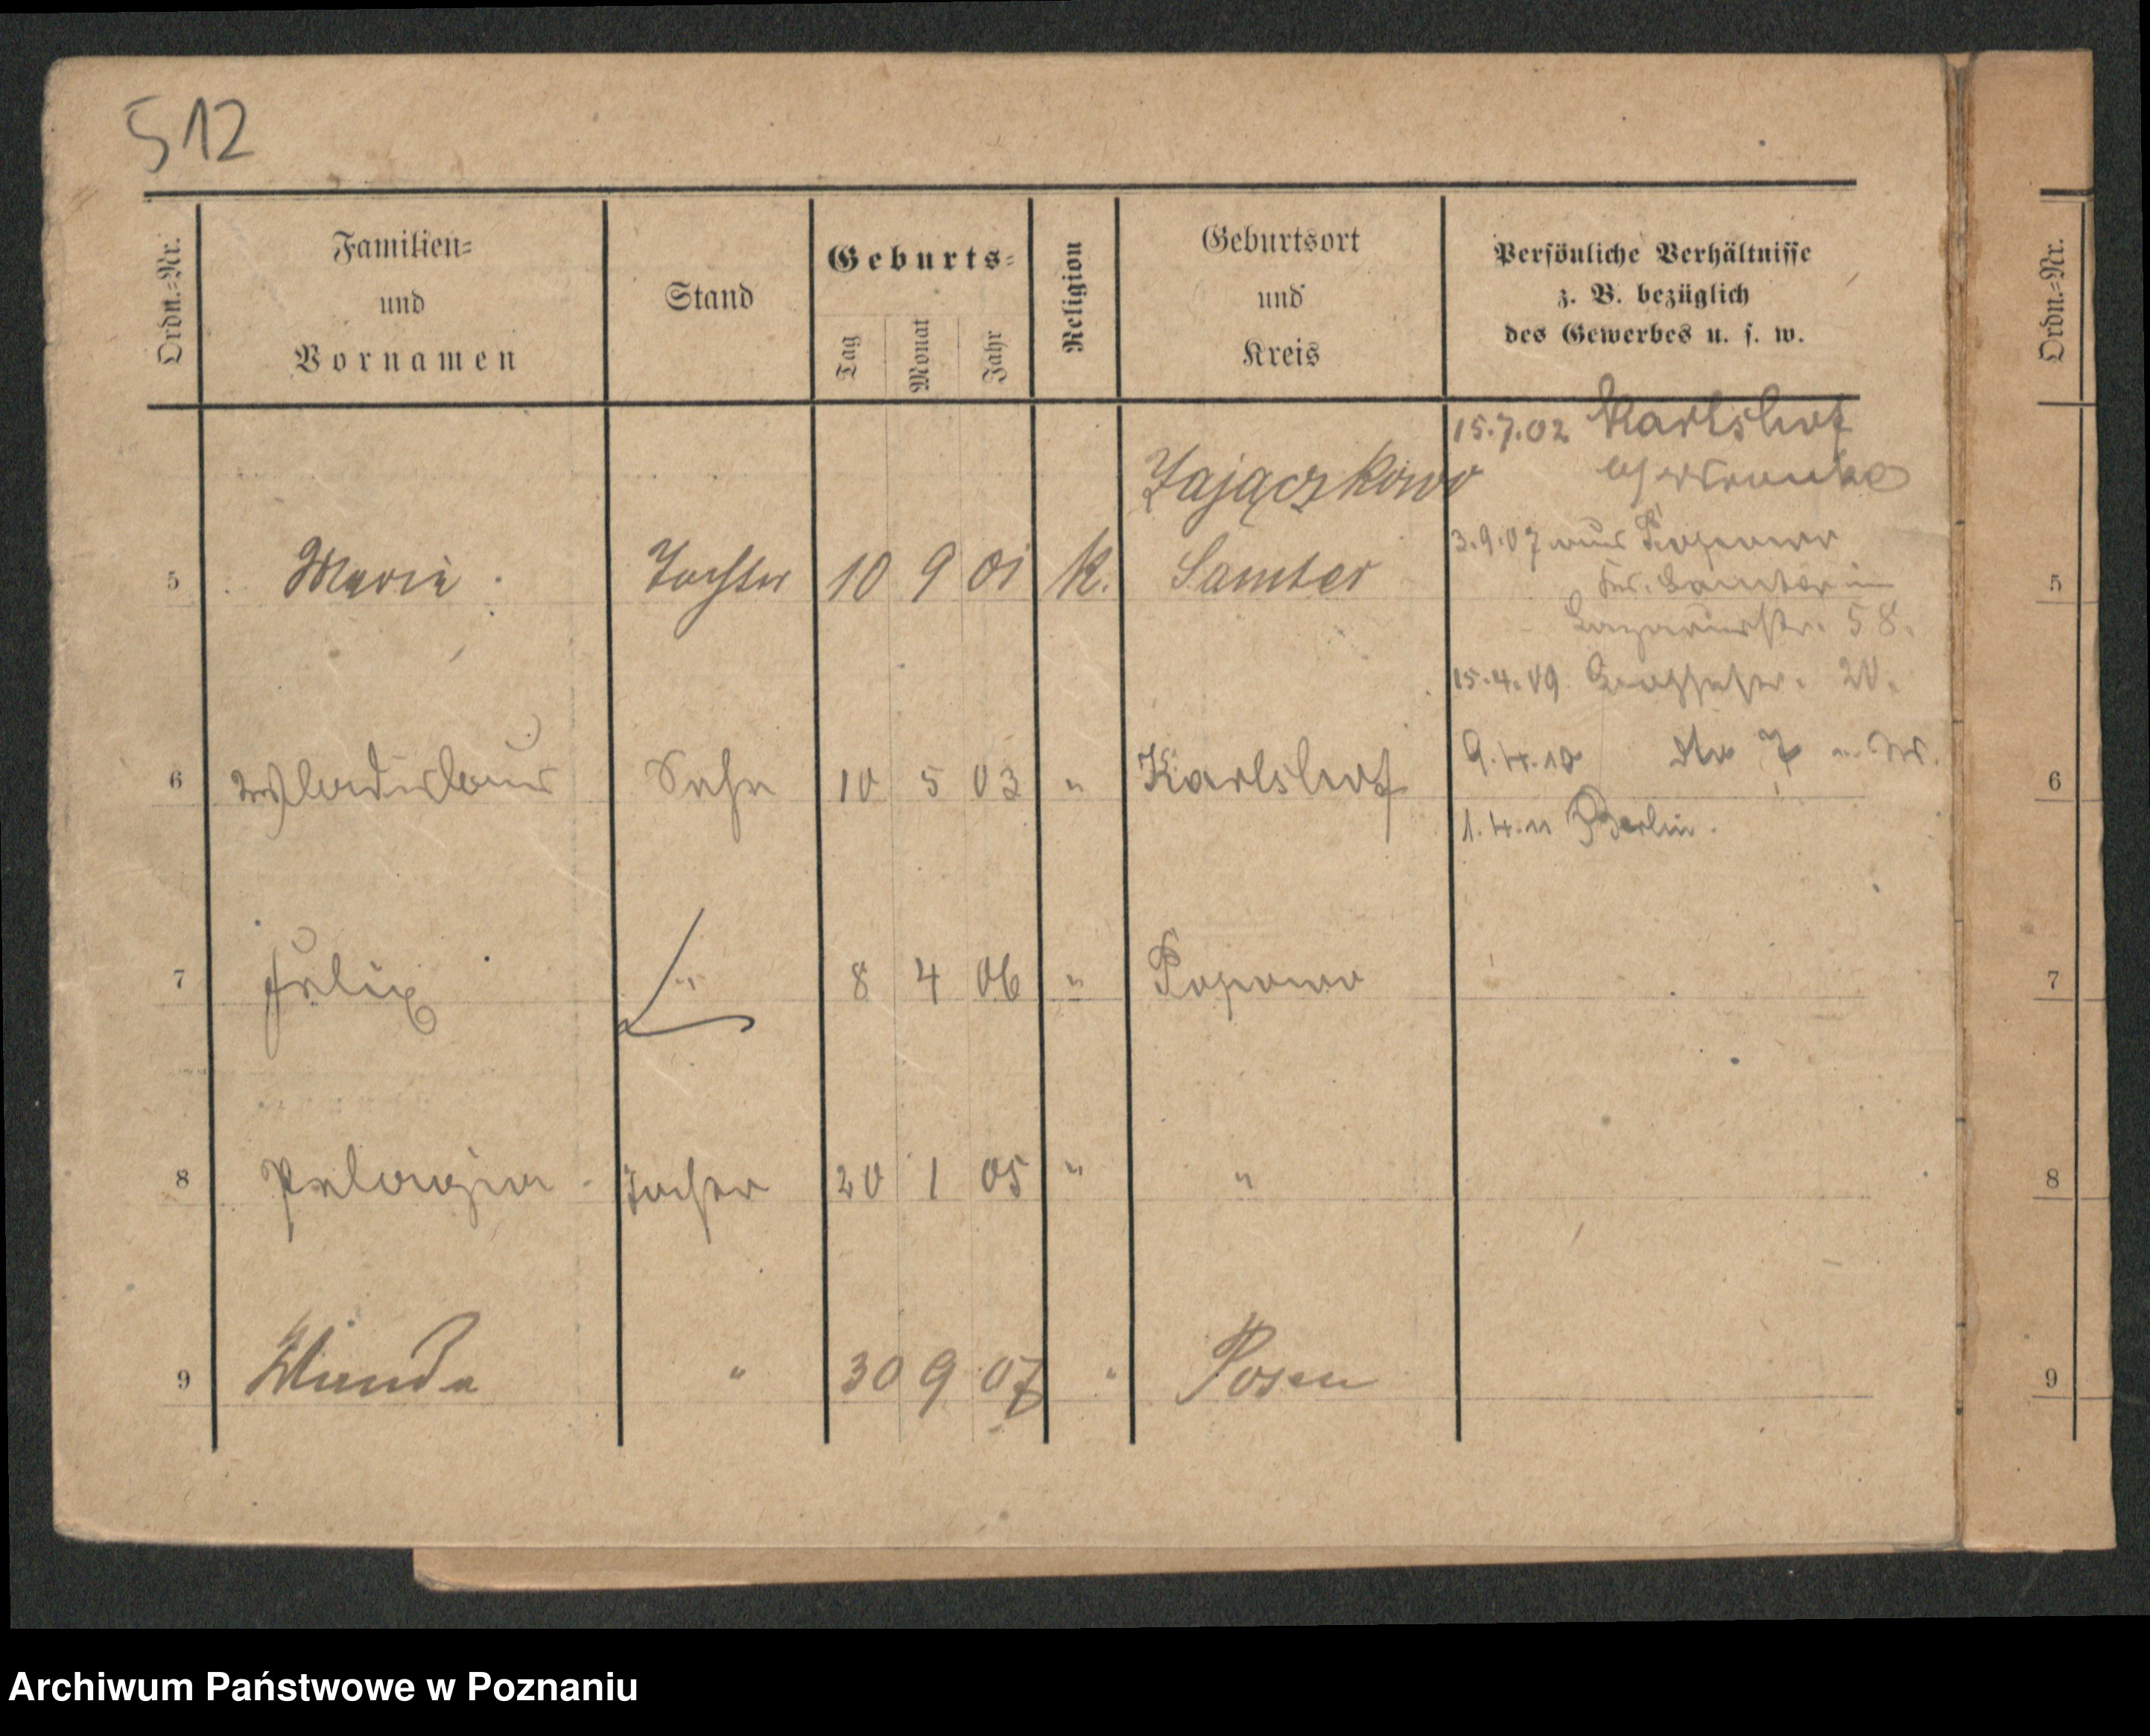 512
Ordn.-Nr.
Familien-
und
Vornamen
Stand
Geburts-
Tag
Monat
Jahr
Religion
Geburtsort
und
Kreis
Persönliche Verhältnisse
z. B. bezüglich
des Gewerbes u. s. w.
Ordn.-Nr.
15.7.02 Karlshof
Zajączkowo
3.9.07 aus Popowo
5 Marie Tochter 10 9 01 K. Samter
Kr. Samter in
5
Lazarusstr. 58.
15.4.09 20.
6 Wladislaus Sohn 10 5 03 " Karlshof
9.4.10 dto 7
6
1.4.11 Berlin.
7 Felix " 8 4 06 " Popowo
7
8 Pelagia Tochter 20 1 05 " "
8
9 Wanda " 30 9 07 " Posen
9
Archiwum Państwowe w Poznaniu